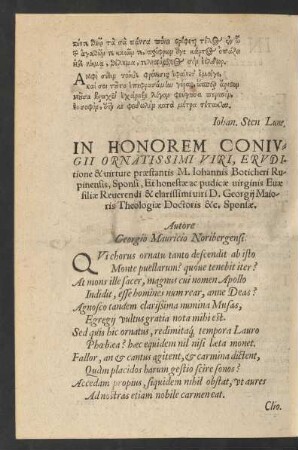 Iohan. Sten Luae.
IN HONOREM CONIV-
GII ORNATISSIMI VIRI, ERVDI
tione & uirtute præstantis M. Iohannis Boticheri Rupinensis
Sponsi, Et honestæ ac pudicæ uirginis Euæ
filiæ Reuerendi & clarissimi uiri D. Georgij Maioris
Theologiæ Doctoris &c. Sponsæ.
Autore
Georgio Mauricio Noribergensi.
QVi chorus ornatu tanto descendit ab isto
Monte puellarum? quoue tenebit iter?
At mons ille sacer, magnus cui nomen Apollo
Indidit, esse homines num rear, anne Deas?
Agnosco tandem clarissima numina Musas,
Egregij uultus gratia nota mihi est.
Sed quis hic ornatus, redimitaq́; tempora Lauro
Phœbæa? hæc equidem nil nisi læta monet.
Fallor, an & cantus agitent, & carmina dictent,
Quàm placidos harum gestio scire sonos?
Accedam propius, siquidem nihil obstat, ut aures
Ad nostras etiam nobile carmen eat.
Clio.